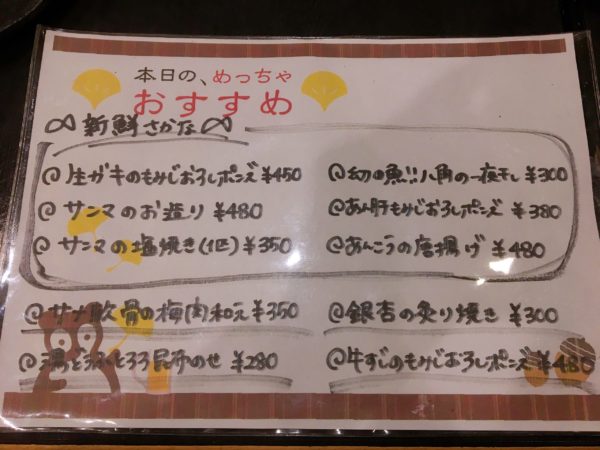 本日の、めっちゃ
おすすめ
新鮮さかな
@生ガキのもみじおろしポンズ ¥450
@サンマのお造り ¥480
@サンマの塩焼き(1匹) ¥350
@幻の魚!!八角の一夜干し ¥300
@あん肝もみじおろしポンズ ¥380
@あんこうの唐揚げ ¥480
@サメ軟骨の梅肉和え ¥350
@湯どうふとろろ昆布のせ ¥280
@銀杏の炙り焼き ¥300
@牛すじのもみじおろしポンズ ¥480